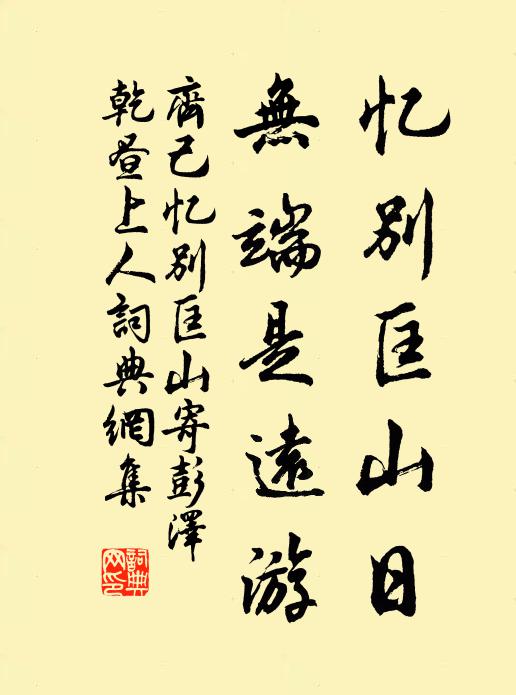 忆别匡山日
無端是遠游
齊己忆别匡山寄彭澤
乾晝上人詞典網集
詞典网印